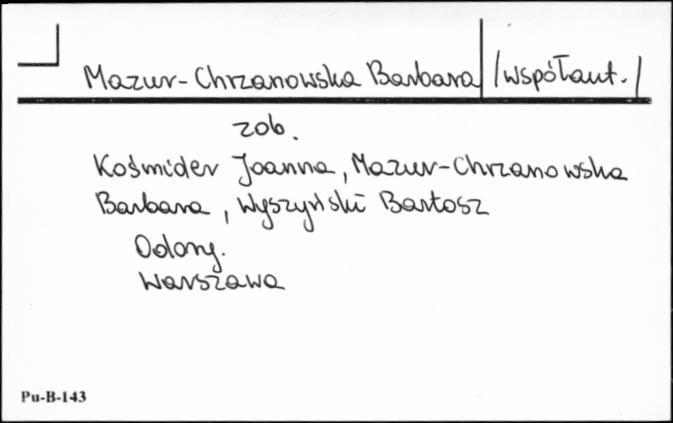 Mazur-Chrzanowska Barbara /współaut./
zob.
Kośmider Joanna, Mazur-Chrzanowska
Barbara, Wyszyński Bartosz
Odony.
Warszawa
Pu-B-143